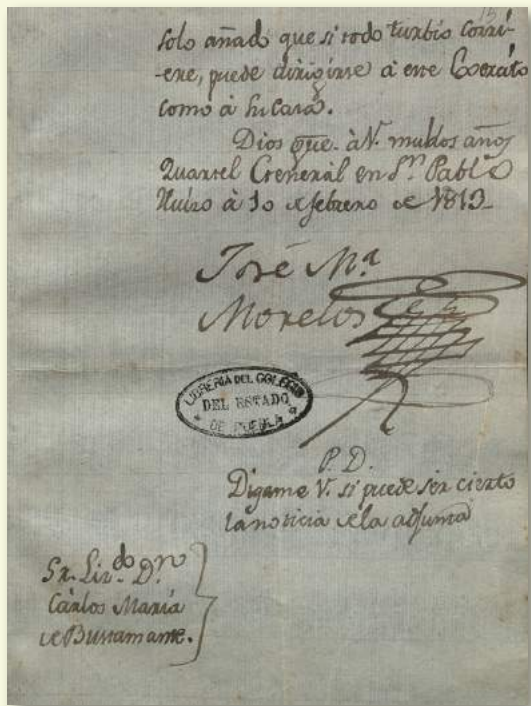 15
solo añado que si todo turbio corri-
-ere, puede dirigirse à este Exercito
como à su casa.
Dios gue. à V. muchos años
Quartel General en Sn. Pablo
Huizo à 10 de febrero de 1813_
José Ma.
Morelos
LIBRERIA DEL COLEGIO
DEL ESTADO
DE PUEBLA
P. D.
Digame V. si puede ser cierto
la noticia de la adjunta
Sr. Licdo. Dn.
Cárlos María
de Bustamante.